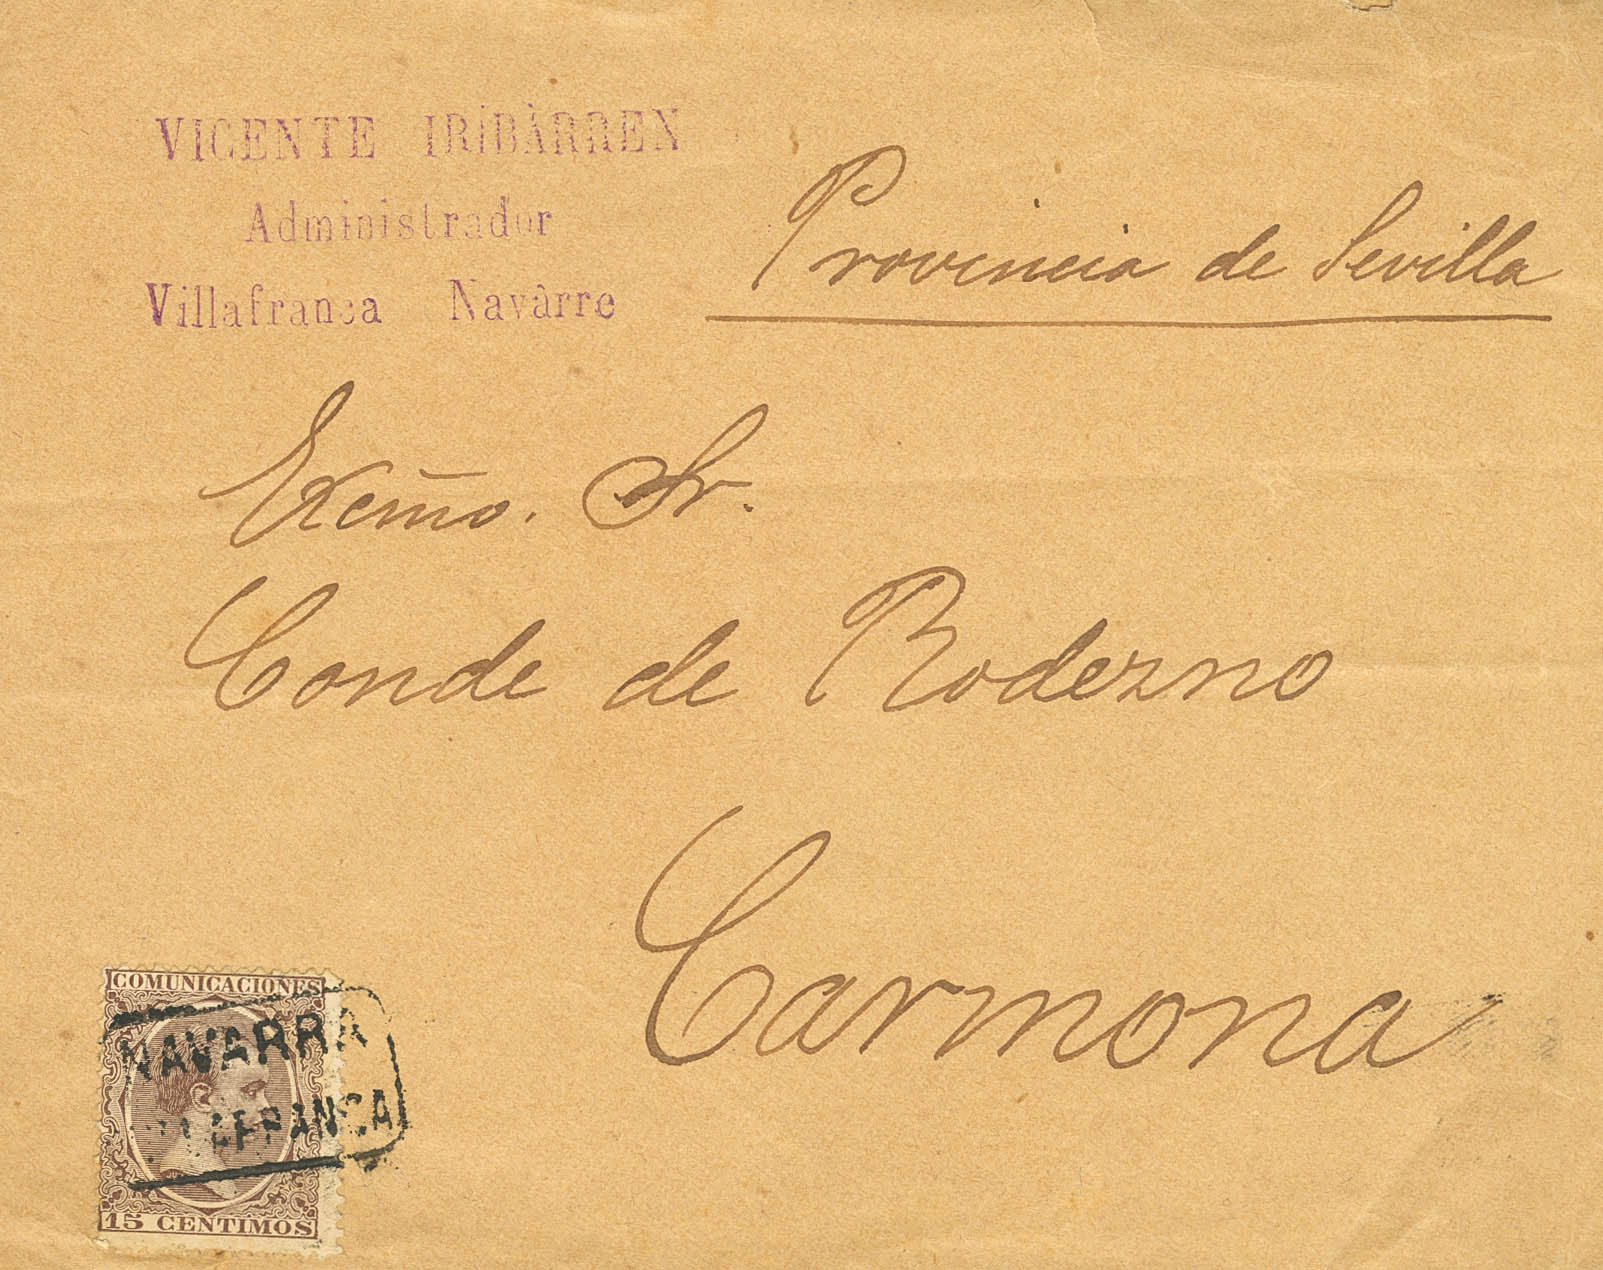 VICENTE IRÍBÀRREN
Administrador
Villafranca Navàrre
Provincia de Sevilla
Excmo. Sr.
Conde de Rodezno
Carmona
COMUNICACIONES
NAVARRA
VILLAFRANCA
15 CENTIMOS